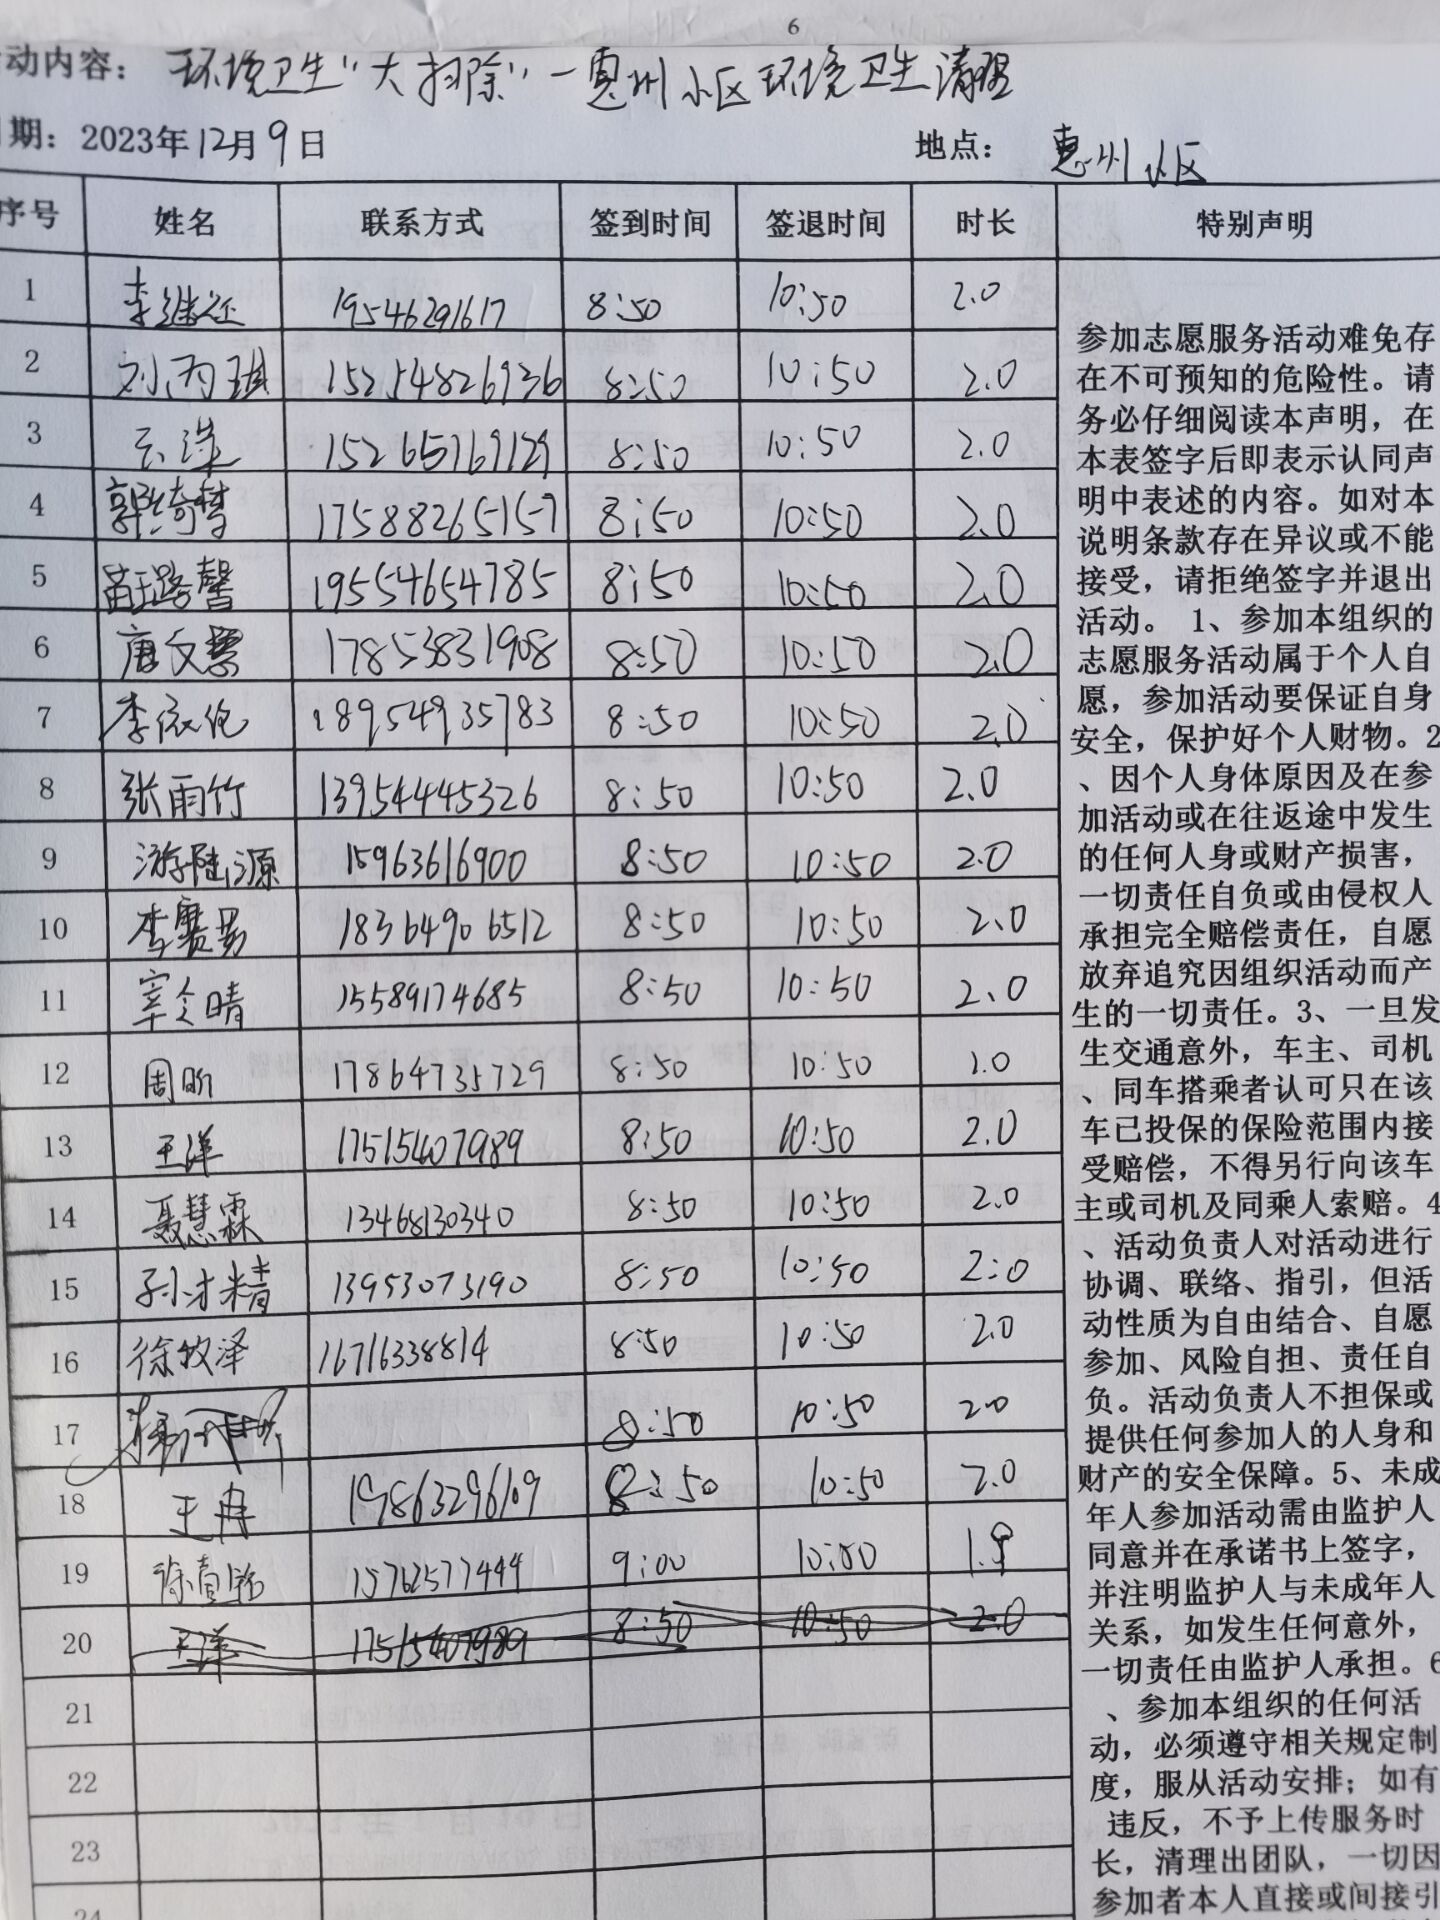 6
动内容：环境卫生"大扫除"一惠州小区环境卫生清理
期：2023年12月9日 地点：惠州小区
序号 姓名 联系方式 签到时间 签退时间 时长 特别声明
1 李继 19546291617 8:50 10:50 2.0
2 刘雨琪 152154826936 8:50 10:50 2.0
3 15265769129 8:50 10:50 2.0
4 郭绮梦 17588265757 8:50 10:50 2.0
5 苗璐馨 19554654785 8:50 10:50 2.0
6 唐文慧 17853831908 8:50 10:50 2.0
7 李依伦 18954935783 8:50 10:50 2.0
8 张雨竹 13954445326 8:50 10:50 2.0
9 游陆源 15963616900 8:50 10:50 2.0
10 李赛男 18364906512 8:50 10:50 2.0
11 宰令晴 15589174685 8:50 10:50 2.0
12 周昕 17864735729 8:50 10:50 2.0
13 王洋 17515407989 8:50 10:50 2.0
14 聂慧霖 13468130340 8:50 10:50 2.0
15 孙才精 13953073190 8:50 10:50 2:0
16 徐牧泽 16716338814 8:50 10:50 2.0
17 8:50 10:50 2.0
18 王冉 19863296109 8:50 10:50 2.0
19 15762577444 9:00 10:50 1.9
20 王洋 17515407989 8:50 10:50 2.0
21
22
23
24
参加志愿服务活动难免存
在不可预知的危险性。请
务必仔细阅读本声明，在
本表签字后即表示认同声
明中表述的内容。如对本
说明条款存在异议或不能
接受，请拒绝签字并退出
活动。 1、参加本组织的
志愿服务活动属于个人自
愿，参加活动要保证自身
安全，保护好个人财物。2
、因个人身体原因及在参
加活动或在往返途中发生
的任何人身或财产损害，
一切责任自负或由侵权人
承担完全赔偿责任，自愿
放弃追究因组织活动而产
生的一切责任。3、一旦发
生交通意外，车主、司机
、同车搭乘者认可只在该
车已投保的保险范围内接
受赔偿，不得另行向该车
主或司机及同乘人索赔。4
、活动负责人对活动进行
协调、联络、指引，但活
动性质为自由结合、自愿
参加、风险自担、责任自
负。活动负责人不担保或
提供任何参加人的人身和
财产的安全保障。5、未成
年人参加活动需由监护人
同意并在承诺书上签字，
并注明监护人与未成年人
关系，如发生任何意外，
一切责任由监护人承担。6
、参加本组织的任何活
动，必须遵守相关规定制
度，服从活动安排；如有
违反，不予上传服务时
长，清理出团队，一切因
参加者本人直接或间接引